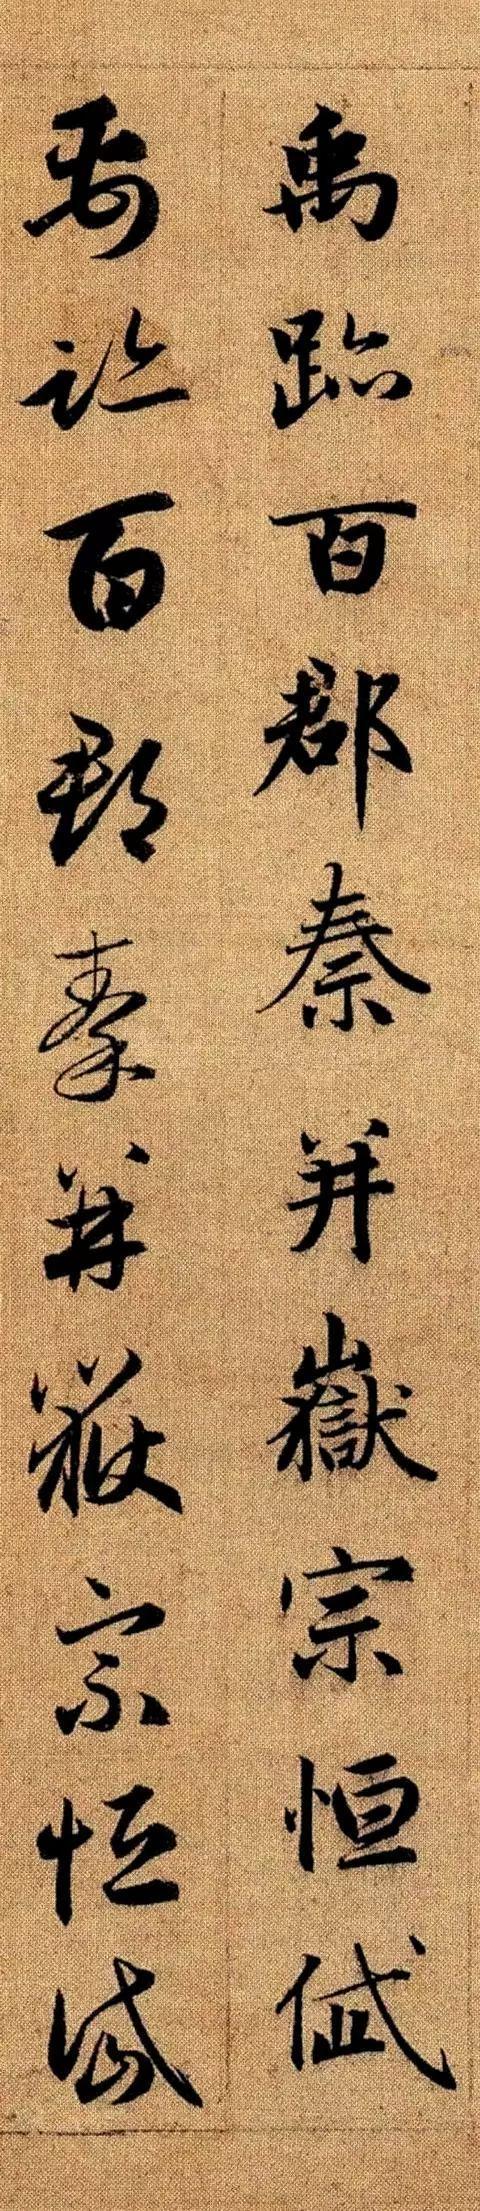 禹跡百郡秦并嶽宗恒岱
禹跡百郡秦并嶽宗恒岱